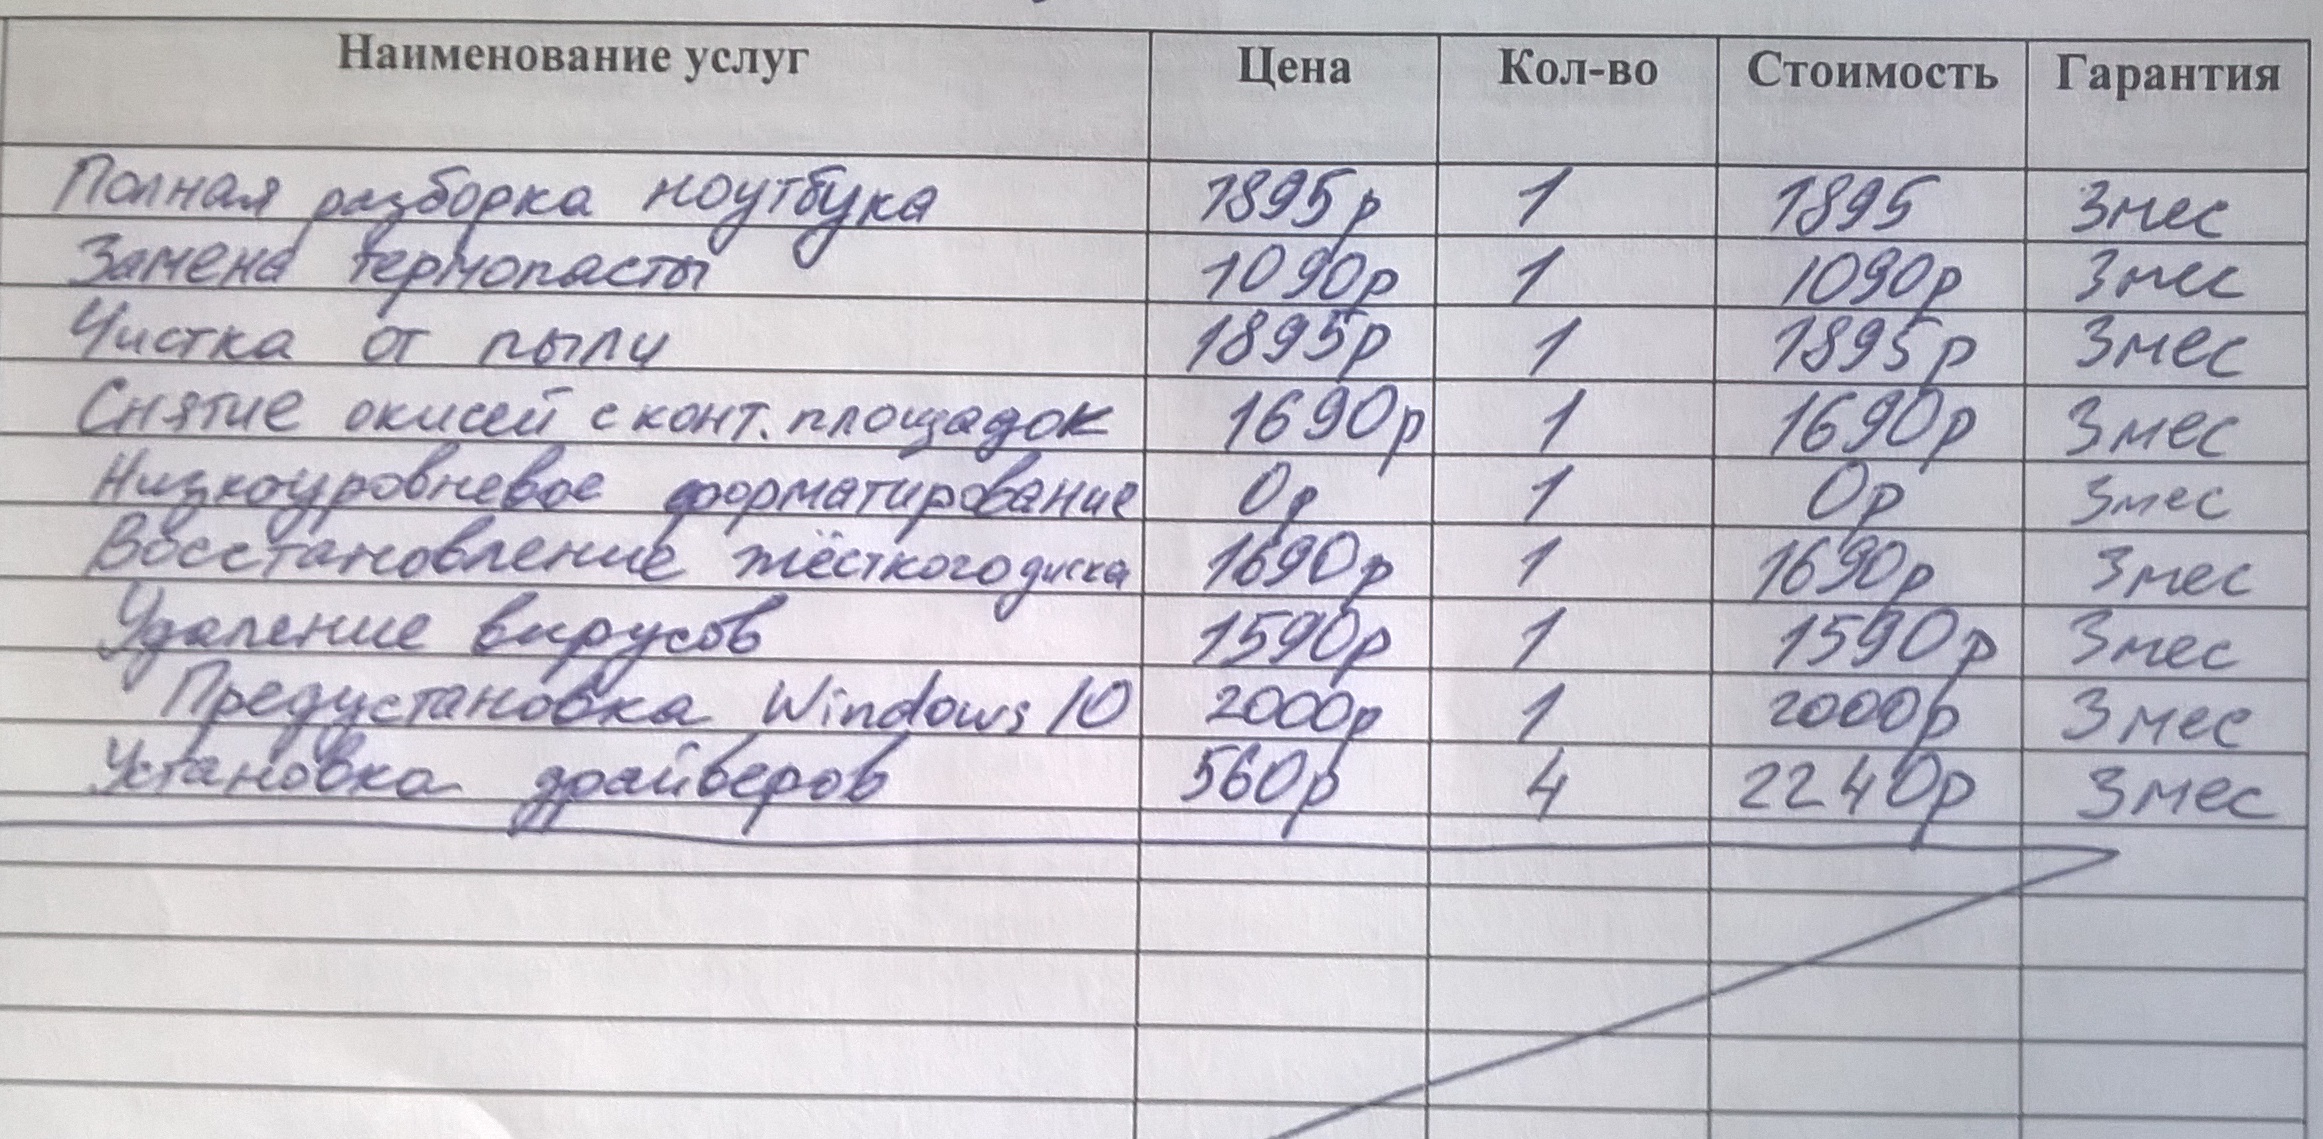 Наименование услуг Цена Кол-во Стоимость Гарантия
Полная разборка ноутбука 1895р 1 1895 3мес
Замена термопасты 1090р 1 1090р 3мес
Чистка от пыли 1895р 1 1895р 3мес
Снятие окисей с конт. площадок 1690р 1 1690р 3мес
Низкоуровневое форматирование 0р 1 0р 3мес
Восстановление жёсткого диска 1690р 1 1690р 3мес
Удаление вирусов 1590р 1 1590р 3мес
Предустановка Windows 10 2000р 1 2000р 3мес
Установка драйверов 560р 4 2240р 3мес